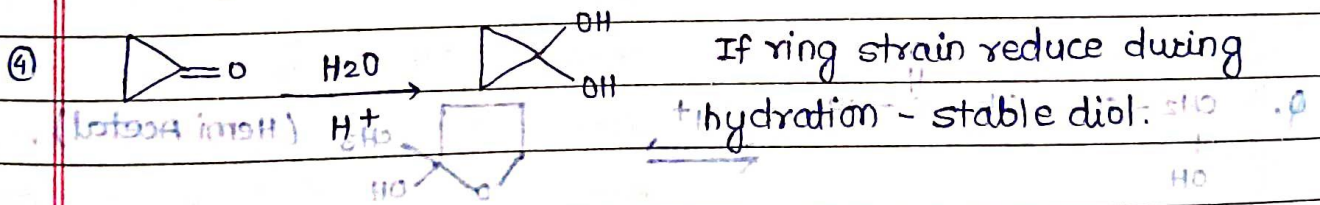 ④ O H2O OH If ring strain reduce during
H+ OH hydration - stable diol.